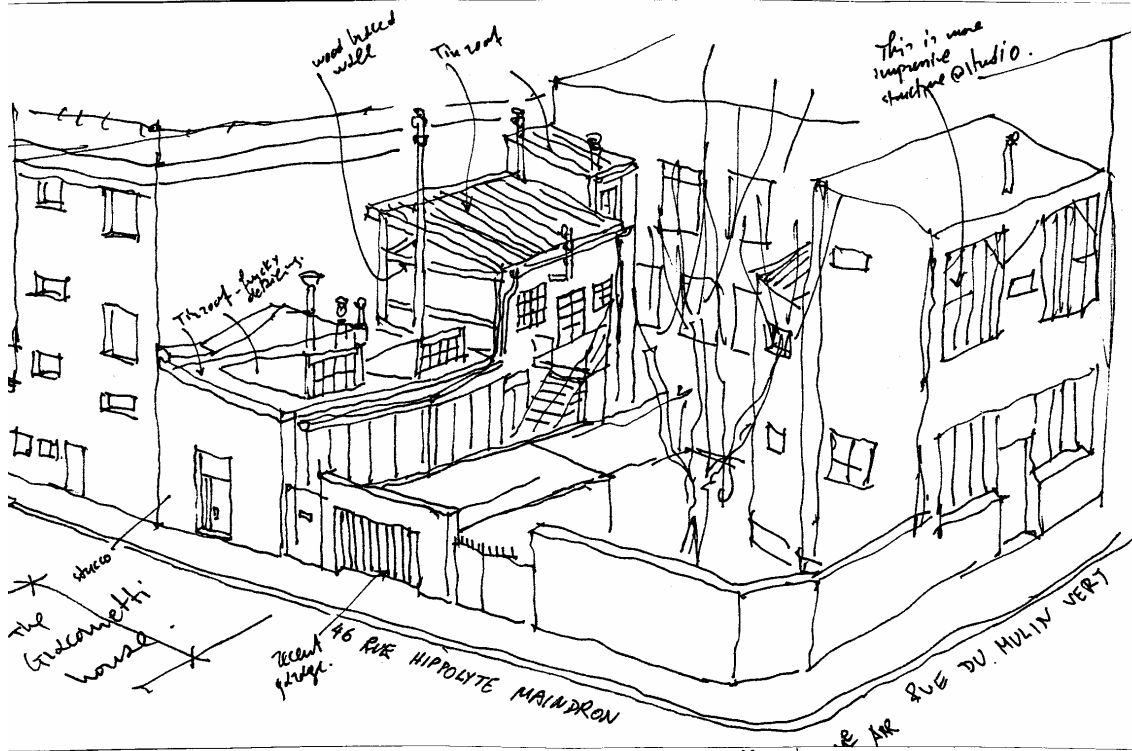 wood backed
wall
Tin roof
This is more
impressive
structure @ studio.
Tin roof - funky
detailing.
stucco
The
Giacometti
house.
recent
garage.
46 RUE HIPPOLYTE MAINDRON
RUE DU. MULIN VERT